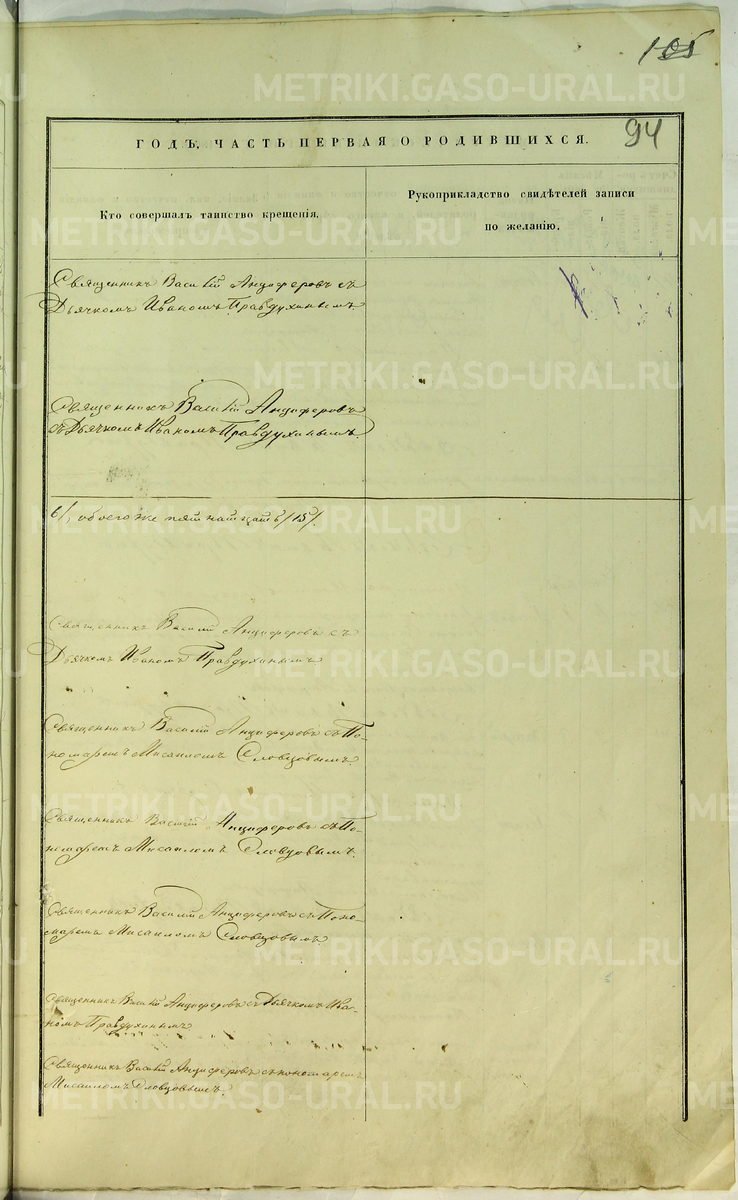 105
94
ГОДЪ, ЧАСТЬ ПЕРВАЯ О РОДИВШИХСЯ.
Кто совершалъ таинство крещенія.
Рукоприкладство свидѣтелей записи
по желанію.
Священникъ Василій Анциферовъ съ
Дьячкомъ Иваномъ Правдухинымъ.
Священникъ Василій Анциферовъ
съ Дьячкомъ Иваномъ Правдухинымъ.
6/, обоего же пятнатцать /15/.
Священникъ Василій Анциферовъ съ
Дьячкомъ Иваномъ Правдухинымъ
Священникъ Василій Анциферовъ съ По-
номаремъ Мисаиломъ Словцовымъ.
Священникъ Василій Анциферовъ съ По-
номаремъ Мисаиломъ Словцовымъ.
Священникъ Василій Анциферовъ съ Поно-
маремъ Мисаиломъ Словцовымъ
Священникъ Василій Анциферовъ съ Дьячкомъ Ива-
номъ Правдухинымъ
Священникъ Василій Анциферовъ съ пономаремъ
Мисаиломъ Словцовымъ.
METRIKI.GASO-URAL.RU